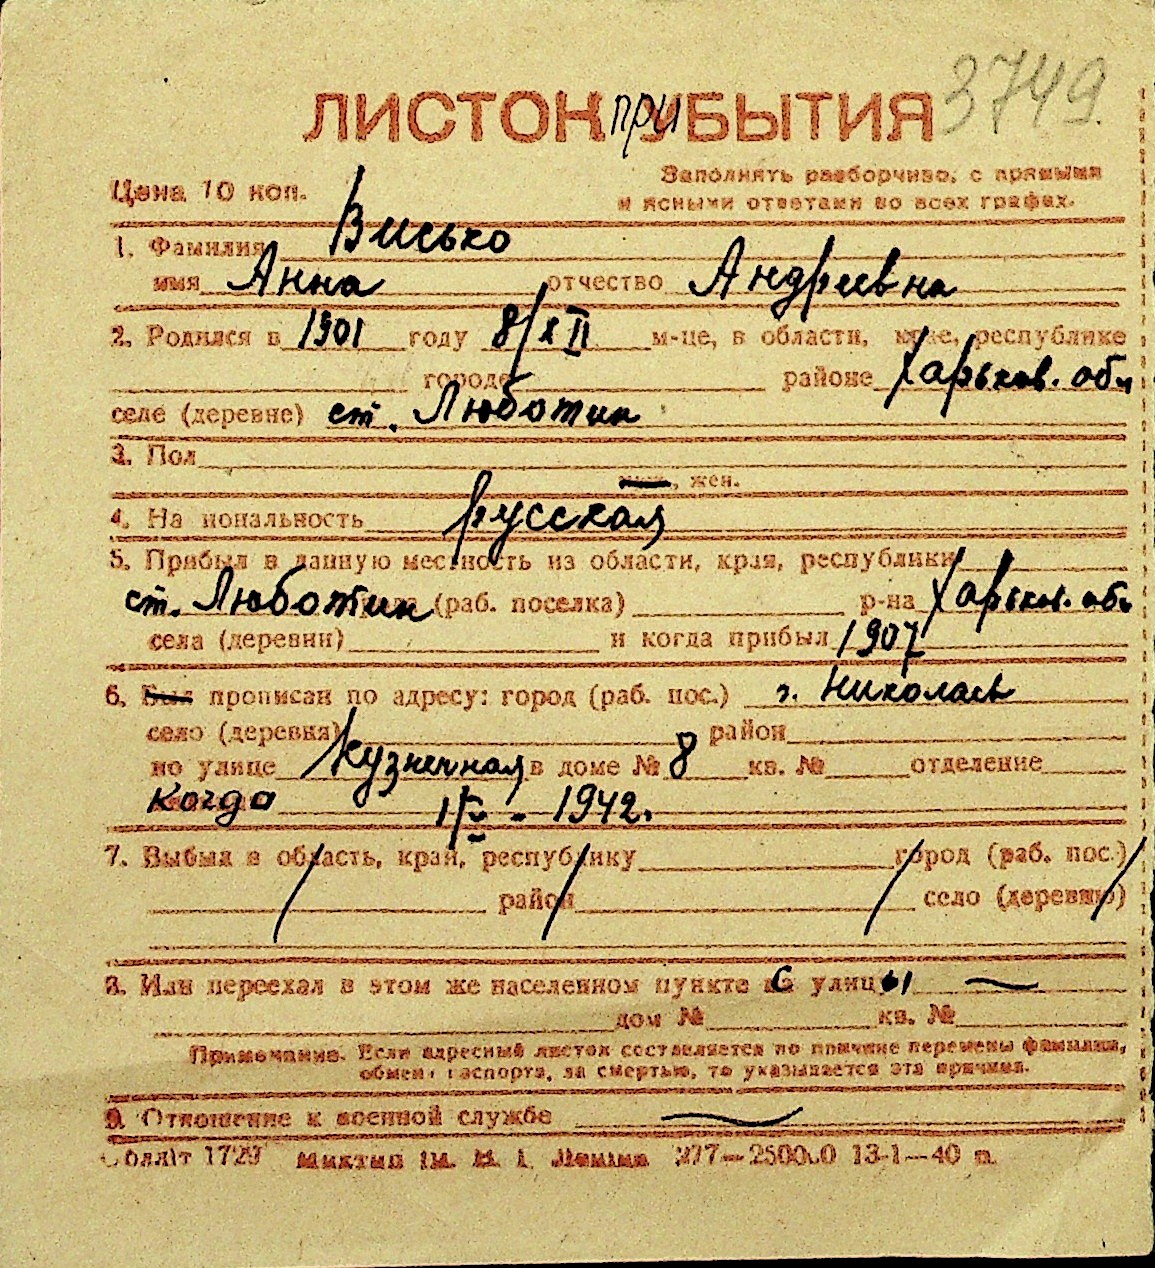 3749
ЛИСТОК при БЫТИЯ
Цена 10 коп.
Заполнять разборчиво, с прямыми
и ясными ответами во всех графах.
1. Фамилия Висько
имя Анна отчество Андреевна
2. Родился в 1901 году 8/XII м-це, в области, крае, республике
городе районе Харьков. обл
селе (деревне) ст. Люботин
3. Пол
муж., жен.
4. Национальность русская
5. Прибыл в данную местность из области, края, республики
ст. Люботин города (раб. поселка) р-на Харьков. об.
села (деревни) и когда прибыл 1907
6. Был прописан по адресу: город (раб. пос.) г. Николаев
село (деревня) район
по улице Кузнечная в доме № 8 кв. № отделение
Когда 1/V - 1942.
7. Выбыл в область, край, республику город (раб. пос.)
район село (деревню)
8. Или переехал в этом же населенном пункте с улицы
дом № кв. №
Примечание. Если адресный листок составляется по причине перемены фамилии,
обмена паспорта, за смертью, то указывается эта причина.
9. Отношение к военной службе
Облліт 1729 Миктип ім. В. І. Леніна 277—250000 13-1—40 п.